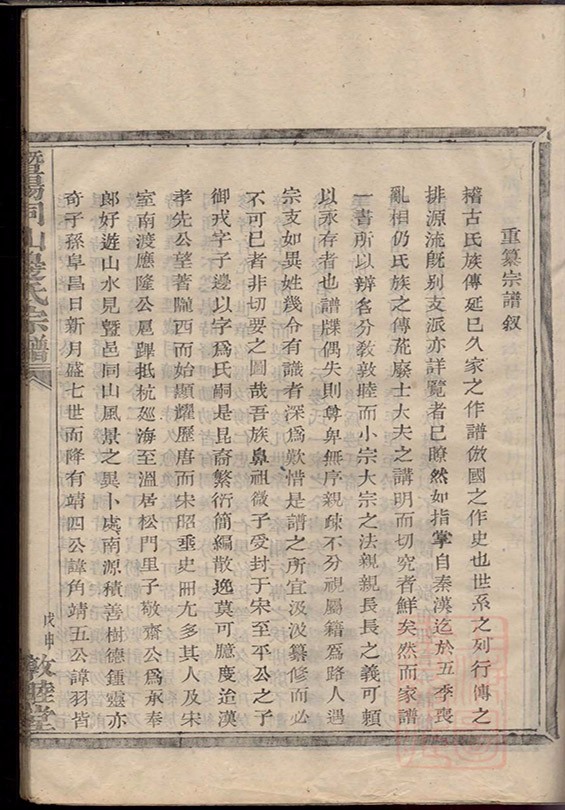 重纂宗譜叙
稽古氏族傳延已久家之作譜倣國之作史也世系之列行傳之
排源流既别支派亦詳覽者已瞭然如指掌自秦漢迄於五季喪
亂相仍氏族之傳蕪廢士大夫之講明而切究者鮮矣然而家譜
一書所以辨名分敦敦睦而小宗大宗之法親親長長之義可賴
以永存者也譜牒偶失則尊卑無序親疎不分視屬籍爲路人遇
宗支如異姓幾令有識者深爲歎惜是譜之所宜汲汲纂修而必
不可已者非切要之圖哉吾族鼻祖微子受封于宋至平公之子
御戎字子邊以字爲氏嗣是昆裔繁衍簡編散逸莫可臆度迨漢
孝先公望著隴西而始顯耀歷唐而宋昭垂史冊尤多其人及宋
室南渡應隆公扈蹕抵杭經海至溫居松門里子敬齋公爲承奉
郎好遊山水見暨邑同山風景之異卜處南源積善樹德鍾靈亦
奇子孫阜昌日新月盛七世而降有靖四公諱角靖五公諱羽皆
暨陽同山邊氏宗譜
戊申
敦睦堂